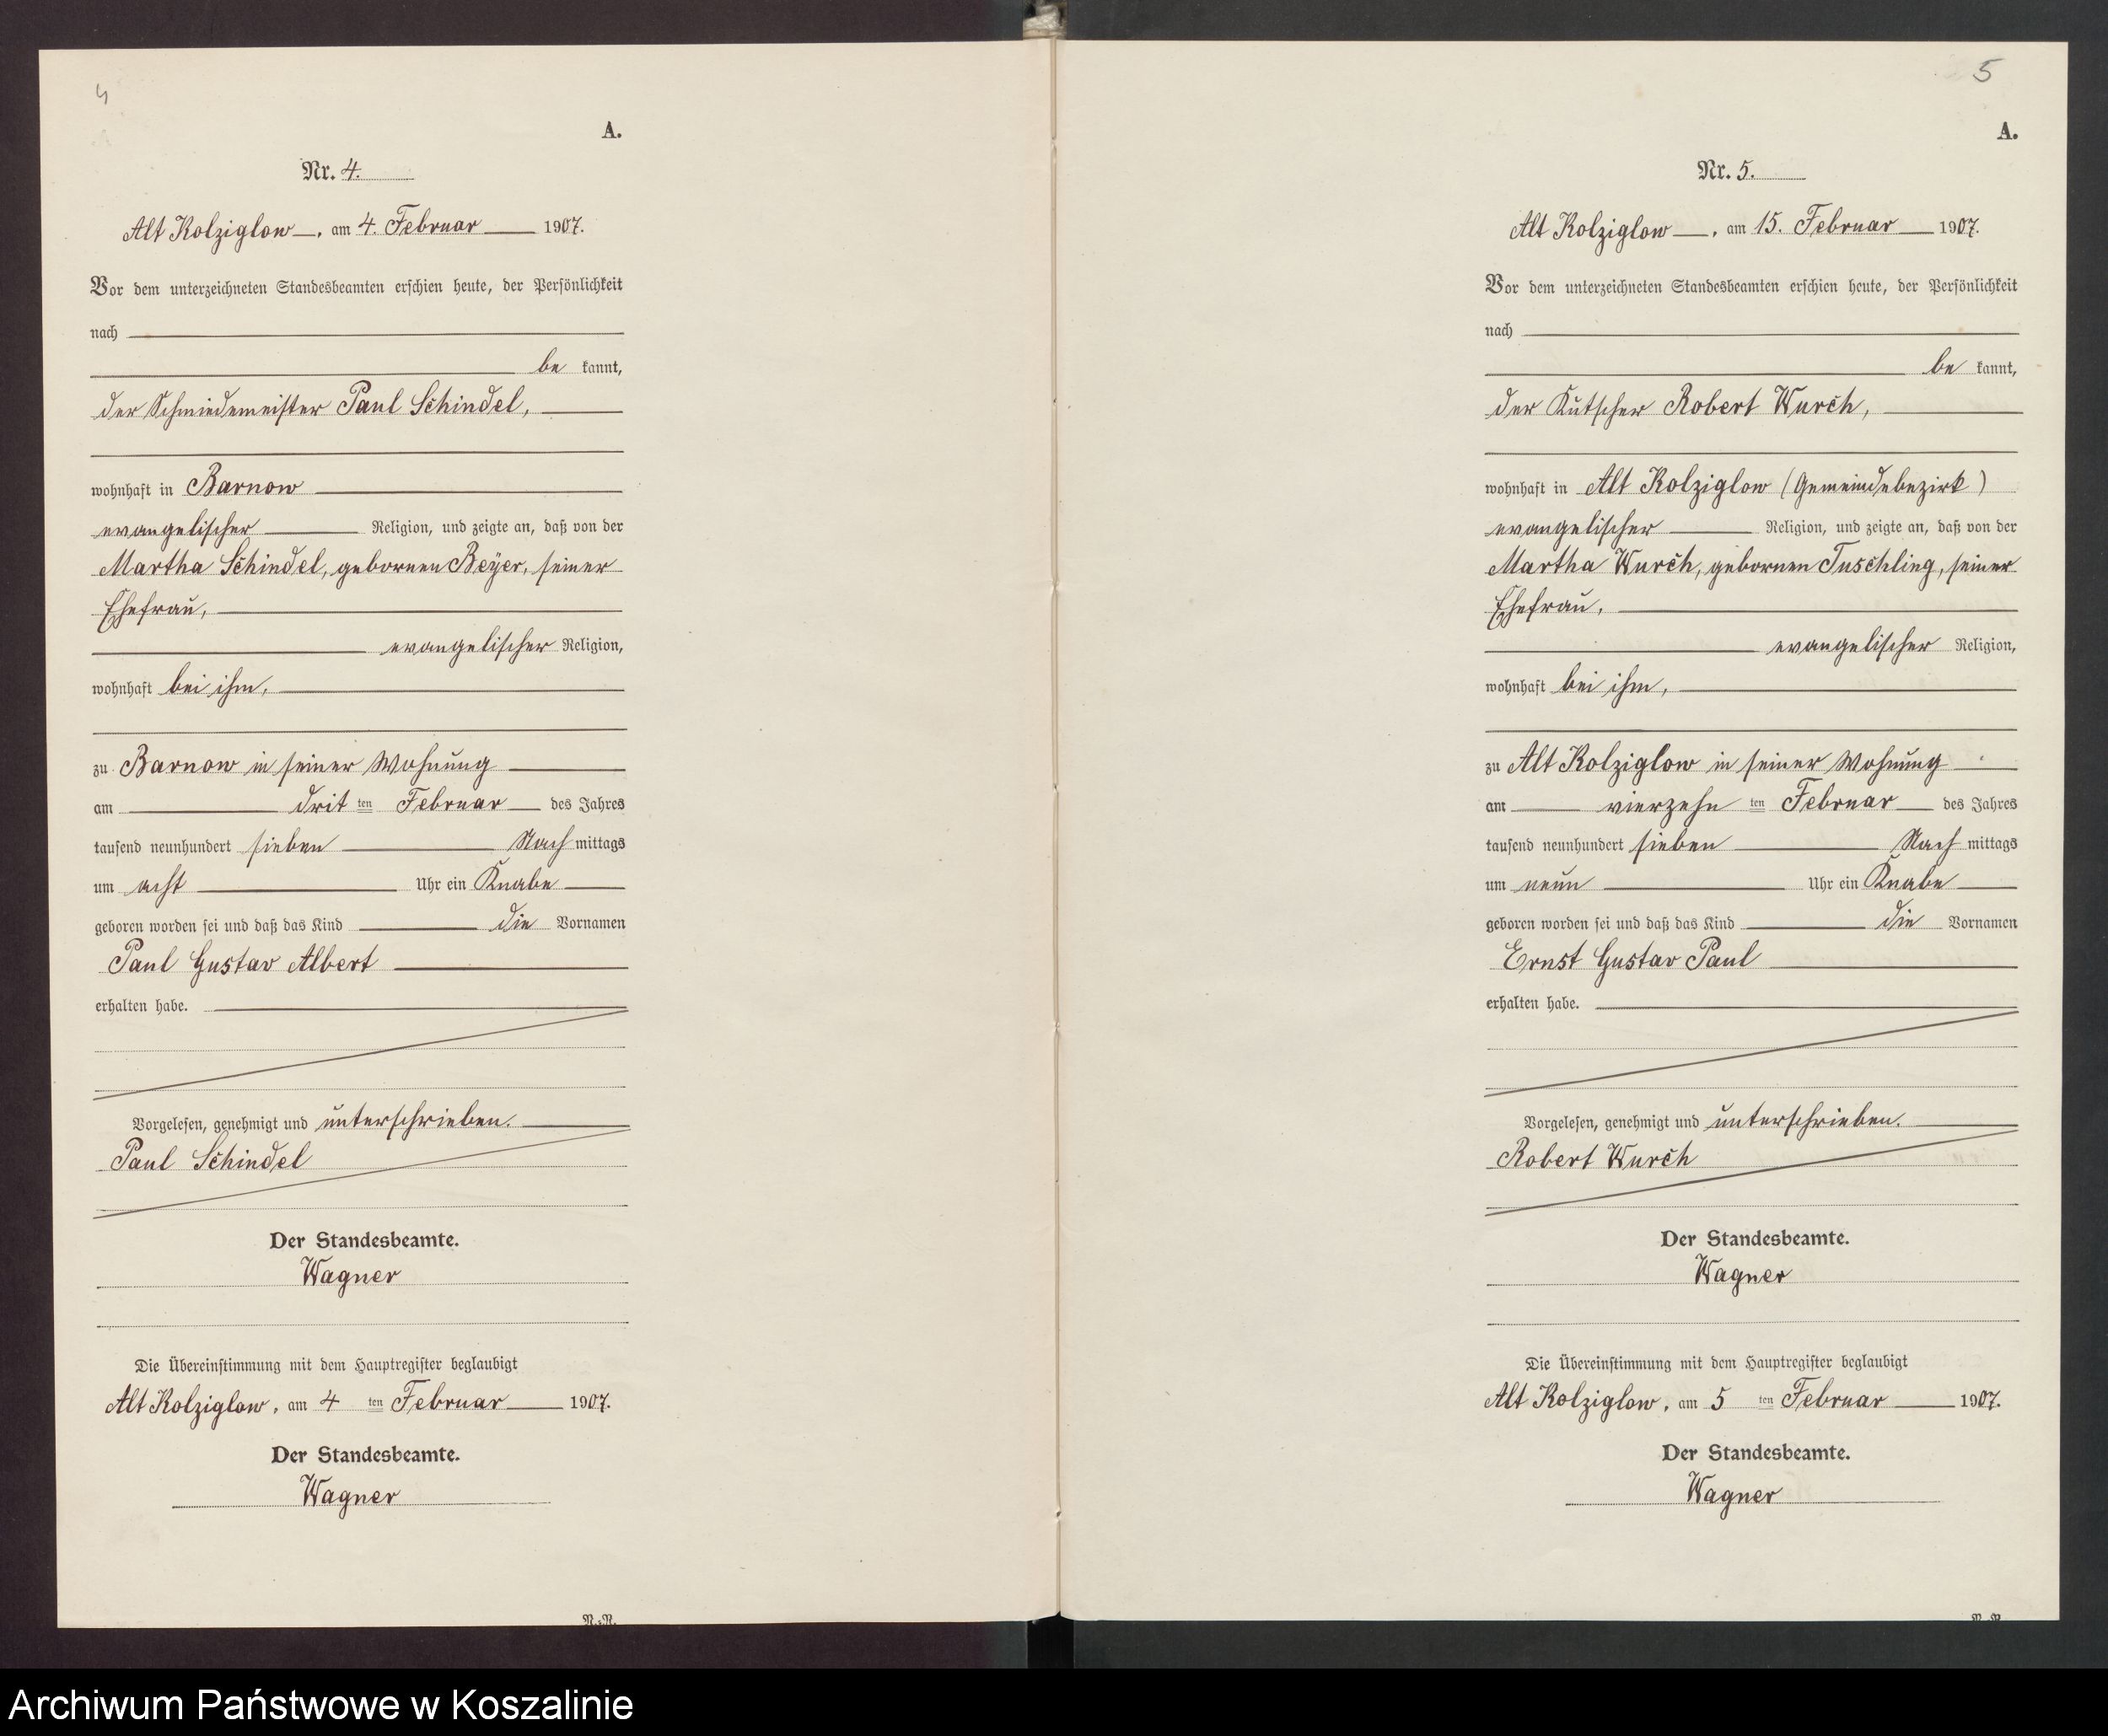 4
A.
Nr. 4.
Alt Kolziglow, am 4. Februar 1907.
Vor dem unterzeichneten Standesbeamten erschien heute, der Persönlichkeit
nach
be kannt,
der Schmiedemeister Paul Schindel,
wohnhaft in Barnow
evangelischer Religion, und zeigte an, daß von der
Martha Schindel, gebornen Beyer, seiner
Ehefrau,
evangelischer Religion,
wohnhaft bei ihm,
zu Barnow in seiner Wohnung
am drit ten Februar des Jahres
tausend neunhundert sieben Nach mittags
um acht Uhr ein Knabe
geboren worden sei und daß das Kind die Vornamen
Paul Gustav Albert
erhalten habe.
Vorgelesen, genehmigt und unterschrieben.
Paul Schindel
Der Standesbeamte.
Wagner
Die Übereinstimmung mit dem Hauptregister beglaubigt
Alt Kolziglow, am 4 ten Februar 1907.
Der Standesbeamte.
Wagner
N.=R.
5
A.
Nr. 5.
Alt Kolziglow, am 15. Februar 1907.
Vor dem unterzeichneten Standesbeamten erschien heute, der Persönlichkeit
nach
be kannt,
der Kutscher Robert Wurch,
wohnhaft in Alt Kolziglow (Gemeindebezirk)
evangelischer Religion, und zeigte an, daß von der
Martha Wurch, gebornen Tuschling, seiner
Ehefrau,
evangelischer Religion,
wohnhaft bei ihm,
zu Alt Kolziglow in seiner Wohnung
am vierzehn ten Februar des Jahres
tausend neunhundert sieben Nach mittags
um neun Uhr ein Knabe
geboren worden sei und daß das Kind die Vornamen
Ernst Gustav Paul
erhalten habe.
Vorgelesen, genehmigt und unterschrieben.
Robert Wurch
Der Standesbeamte.
Wagner
Die Übereinstimmung mit dem Hauptregister beglaubigt
Alt Kolziglow, am 5 ten Februar 1907.
Der Standesbeamte.
Wagner
Archiwum Państwowe w Koszalinie